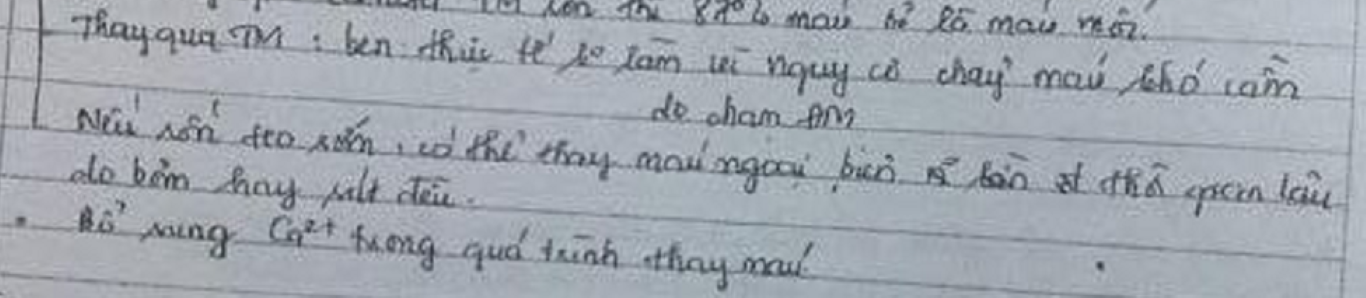 thì 87% máu bỏ là máu mới.
Thay qua TM : bên thực tế ko làm vì nguy cơ chảy máu khó cầm
do chạm ĐM
Nếu rốn teo sớm, có thể thay máu ngoại biên thời gian lâu
do bơm hay hút đều.
Bổ sung Ca2+ trong quá trình thay máu